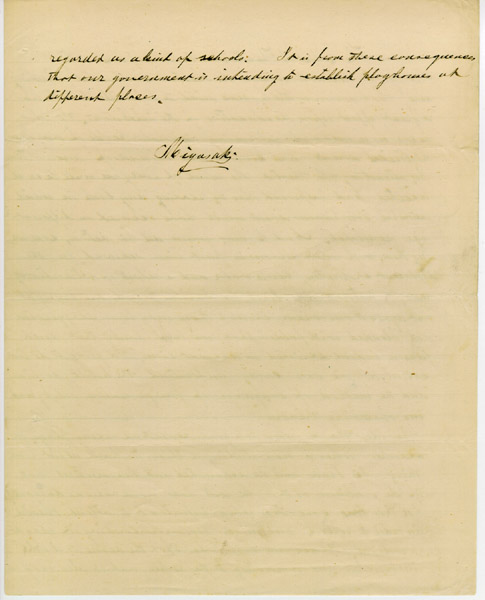 regarded as a kind of schools. It is from these consequences
that our government is intending to establish playhouses at
different places.
Miyasaki